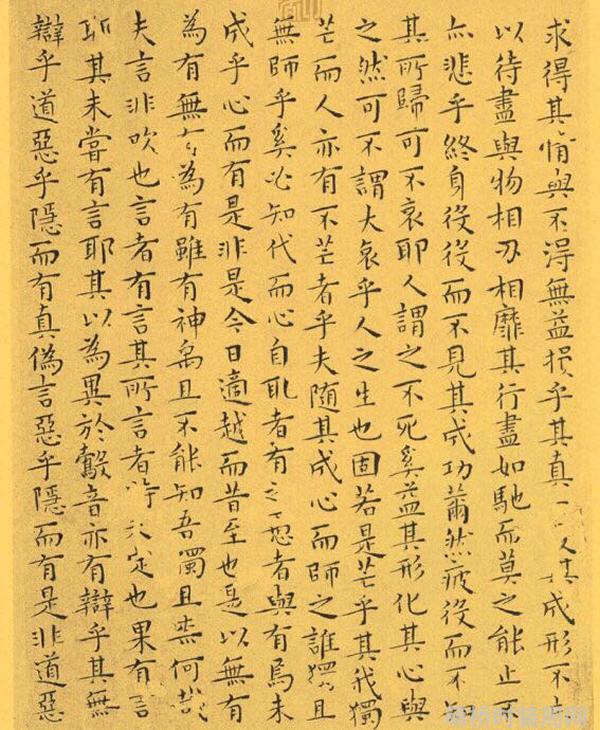 求得其情與不得無益損乎其真一其成形不
以待盡與物相刃相靡其行盡如馳而莫之能止不
亦悲乎終身役役而不見其成功薾然疲役而不
其所歸可不哀耶人謂之不死奚益其形化其心與
之然可不謂大哀乎人之生也固若是芒乎其我獨
芒而人亦有不芒者乎夫隨其成心而師之誰獨且
無師乎奚必知代而心自取者有之愚者與有焉未
成乎心而有是非是今日適越而昔至也是以無有
為有無有為有雖有神禹且不能知吾獨且柰何哉
夫言非吹也言者有言其所言者特未定也果有言
耶其未嘗有言耶其以為異於鷇音亦有辯乎其無
辯乎道惡乎隱而有真偽言惡乎隱而有是非道惡